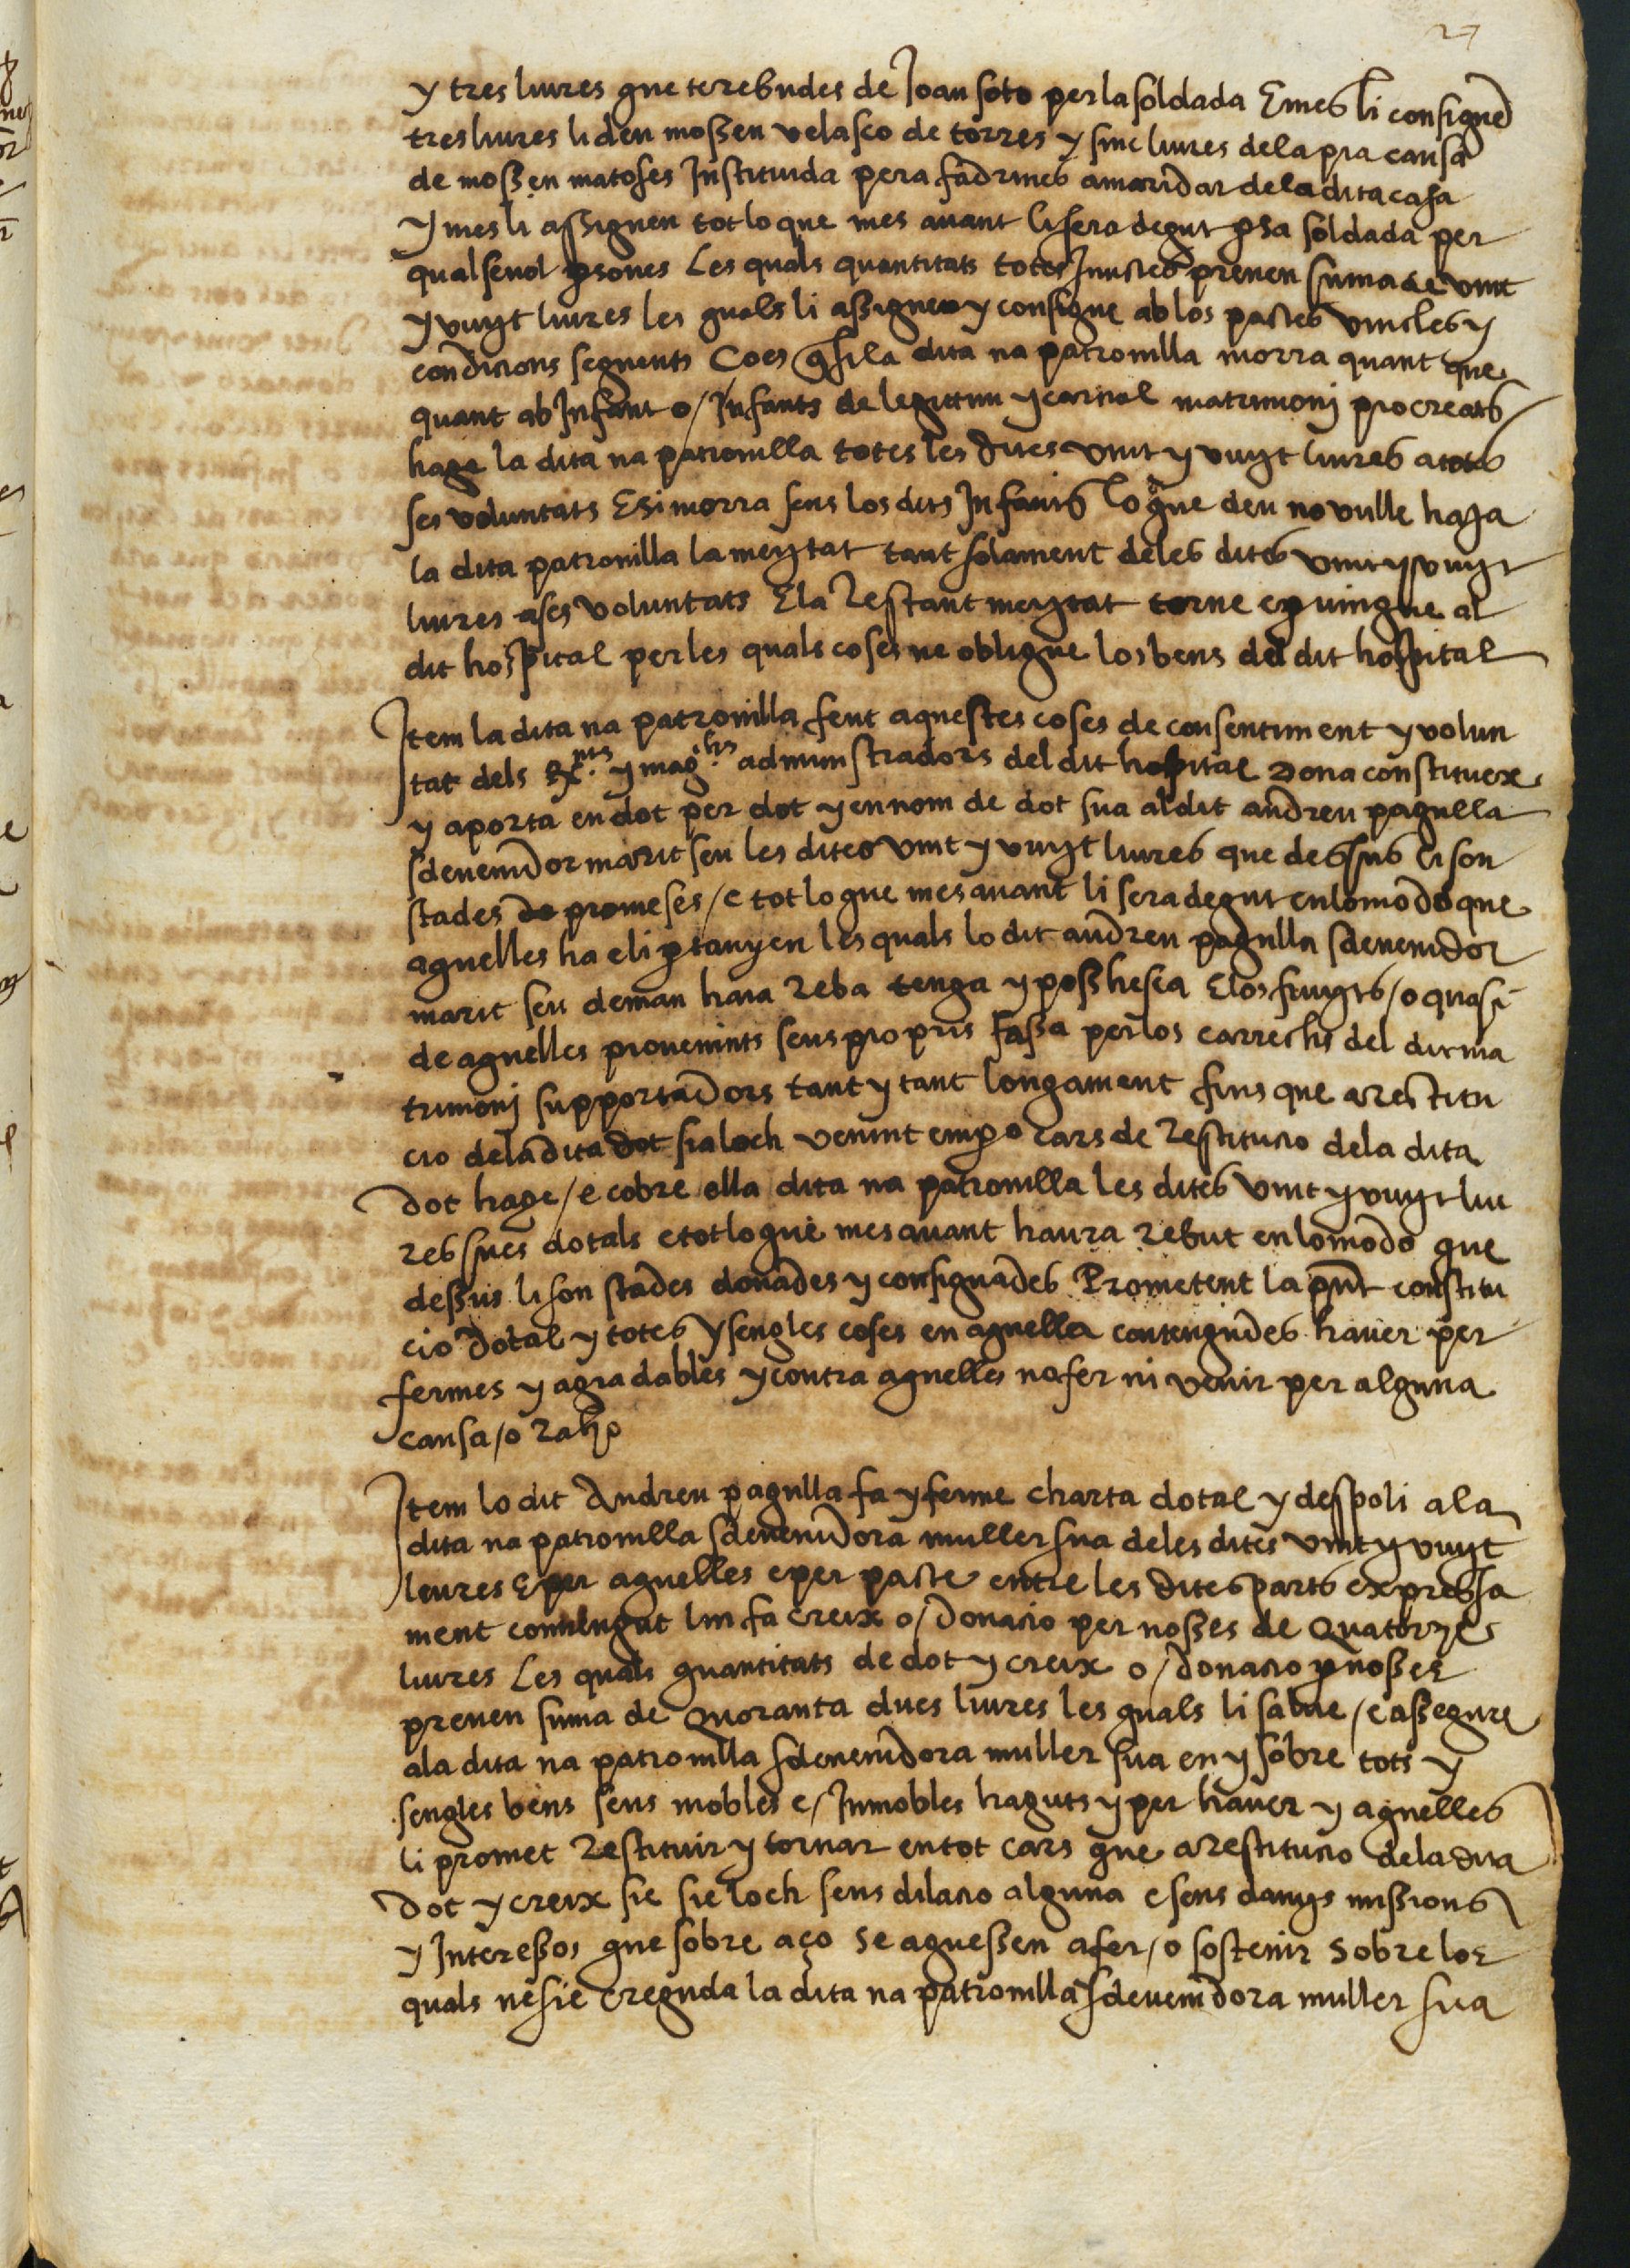 27
y tres liures que te rebudes de Joan soto per la soldada E mes li consigne
tres liures li deu mossen velasco de torres y sinc liures de la pia causa
de mossen matoses Instituida pera fadrines a maridar de la dita casa
y mes li assignen tot lo que mes auant li sera degut p sa soldada per
qualseuol psones Les quals quantitats totes Iunctes prenen suma de vint
y vuyt liures les quals li assignen y consigne ab los pactes vincles y
condicions seguents Coes q si la dita na patronilla morra quant que
quant ab Infant o / Infants de legittim y carnal matrimonj procreats
hage la dita na patronilla totes les dites vint y vuyt liures a totes
ses voluntats E si morra sens los dits Infants lo que deu no vulle haja
la dita patronilla la meytat tant solament de les dites vint y vuyt
liures a ses voluntats E la Restant meytat torne e p vingue al
dit hospital per les quals coses ne obligue los bens del dit hospital
Item la dita na patronilla fent aquestes coses de consentiment y volun
tat dels Rx.nts y mag.chs administradors del dit hospital Dona constituex
y aporta en dot per dot y en nom de dot sua al dit andreu pagulla
sdeuenidor marit seu les dites vint y vuyt liures que dessus li son
stades de promeses / e tot lo que mes auant li sera degut en lo modo que
aquelles ha e li ptanyen les quals lo dit andreu pagulla sdeuenidor
marit seu deman haia Reba tenga y posshesca E los fruyts / o quasi
de aquelles prouenints seus propris fassa per los carrechs del dit ma
trimonj supportadors tant y tant longament fins que a restitu
cio de la dita dot sia loch venint emp o cars de Restitucio de la dita
dot hage / e cobre ella dita na patronilla les dites vint y vuyt liu
res sues dotals e tot lo que mes auant haura Rebut en lo modo que
dessus li son stades donades y consignades Prometent la pnt constitu
cio dotal y totes y sengles coses en aquella contengudes hauer per
fermes y agradables y contra aquelles no fer ni venir per alguna
causa / o Raho
Item lo dit Andreu pagulla fa y ferme charta dotal y despoli a la
dita na patronilla sdeuenidora muller sua de les dites vint y vuyt
liures E per aquelles e per pacte entre les dites parts expressa
ment conuengut lin fa creix o / donacio per nosses de Quatorze
liures Les quals quantitats de dot y creix o / donacio p nosses
prenen suma de Quoranta dues liures les quals li salue / e assegure
a la dita na patronilla sdeuenidora muller sua en y sobre tots y
sengles bens seus mobles e / Inmobles haguts y per hauer y aquelles
li promet Restituir y tornar en tot cars que a Restitucio de la dita
dot y creix sie sie loch sens dilacio alguna e sens danys missions
y Interessos que sobre aço se aguessen a fer / o sostenir sobre los
quals ne sie creguda la dita na patronilla sdeuenidora muller sua